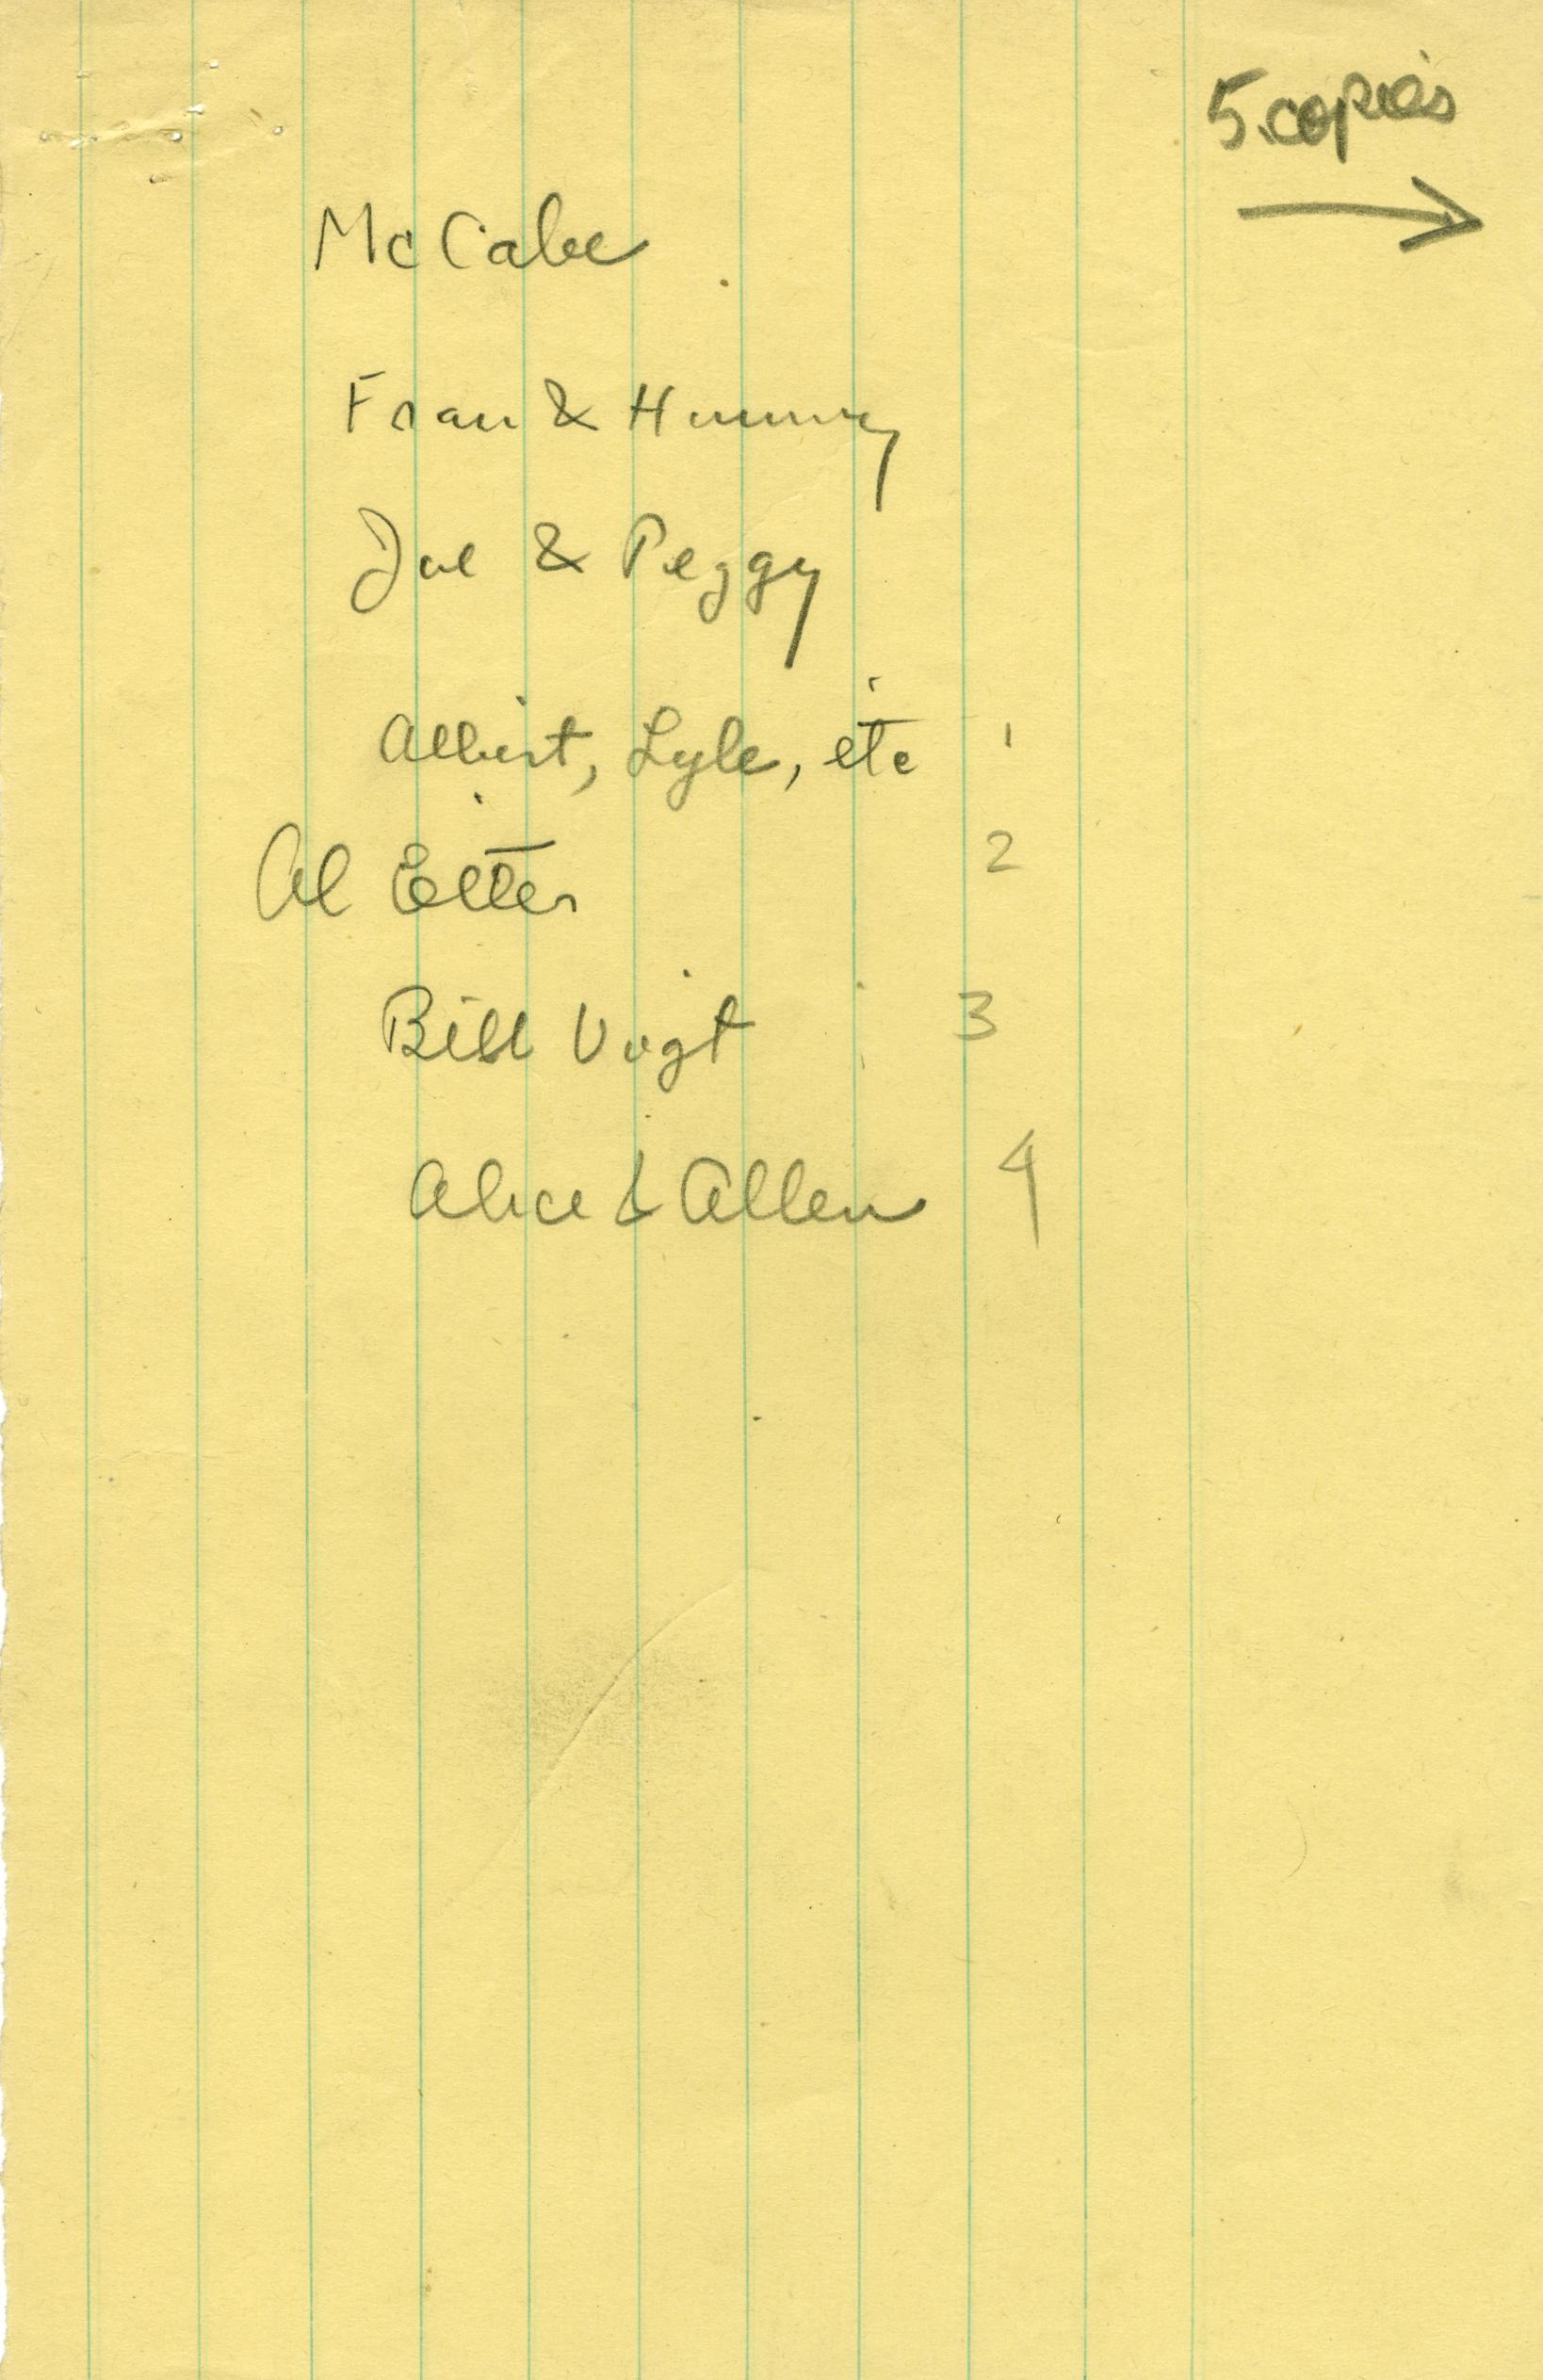 5 copies
McCabe
Fran & Hammy
Joe & Peggy
Albert, Lyle, etc 1
Al Etter 2
Bill Vogt 3
Alice & Allen 4